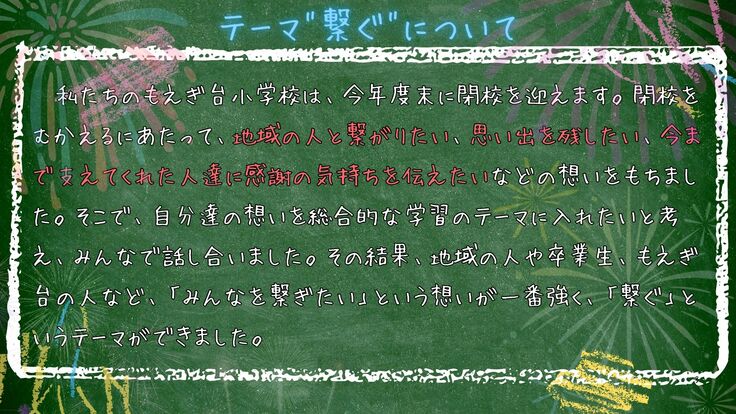 テーマ"繋ぐ"について
私たちのもえぎ台小学校は、今年度末に閉校を迎えます。閉校を
むかえるにあたって、地域の人と繋がりたい、思い出を残したい、今ま
で支えてくれた人達に感謝の気持ちを伝えたいなどの想いをもちまし
た。そこで、自分達の想いを総合的な学習のテーマに入れたいと考
え、みんなで話し合いました。その結果、地域の人や卒業生、もえぎ
台の人など、「みんなを繋ぎたい」という想いが一番強く、「繋ぐ」と
いうテーマができました。